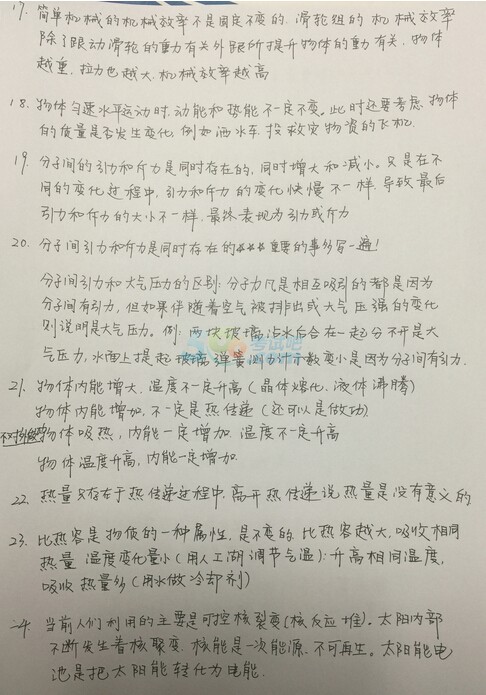 17. 简单机械的机械效率不是固定不变的，滑轮组的机械效率
除了跟动滑轮的重力有关外跟所提升物体的重力有关，物体
越重，拉力也越大，机械效率越高
18. 物体匀速水平运动时，动能和势能不一定不变。此时还要考虑物体
的质量是否发生变化，例如洒水车，投救灾物资的飞机。
19. 分子间的引力和斥力是同时存在的，同时增大和减小。只是在不
同的变化过程中，引力和斥力的变化快慢不一样，导致最后
引力和斥力的大小不一样，最终表现为引力或斥力
20. 分子间引力和斥力是同时存在的，***重要的事多写一遍！
分子间引力和大气压力的区别：分子力凡是相互吸引的都是因为
分子间有引力，但如果伴随着空气被排出或大气压强的变化
则说明是大气压力。例：两块玻璃沾水后合在一起分不开是大
气压力，水面上提起玻璃弹簧测力计示数变小是因为分子间有引力.
21. 物体内能增大，温度不一定升高（晶体熔化，液体沸腾）
物体内能增加，不一定是热传递（还可以是做功）
物体吸热，内能一定增加，温度不一定升高
物体温度升高，内能一定增加.
22. 热量只存在于热传递过程中，离开热传递说热量是没有意义的
23. 比热容是物质的一种属性，是不变的，比热容越大，吸收相同
热量，温度变化量小（用人工湖调节气温）：升高相同温度，
吸收热量多（用水做冷却剂）
24. 当前人们利用的主要是可控核裂变（核反应堆）。太阳内部
不断发生着核聚变，核能是一次能源，不可再生。太阳能电
池是把太阳能转化为电能.